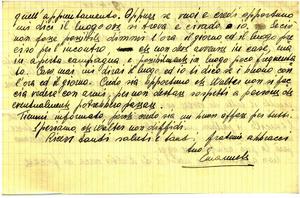 quell'appuntamento. Oppure se vuoi e credi opportuno
mi dici il luogo ove si trova e ci vado io. Se ciò
non fosse possibile dimmi l'ora il giorno ed il luogo pre
ciso per l'incontro, che non deve avvenire in case, ma
in aperta campagna, e possibilmente in luogo poco frequenta
to. Caso mai mi dirai il luogo ed io ti dico se è buono con
l'ora ed il giorno. Credo sia opportuno che Walter non si fac
cia vedere con armi, per non destare sospetti a persone che
eventualmente potrebbero passare.
Tienmi informato, poiché credo sia un buon affare per tutti.
Speriamo che Walter non diffidi.
Ricevi tanti saluti e tanti fraterni abbracci
tuo
Emanuele